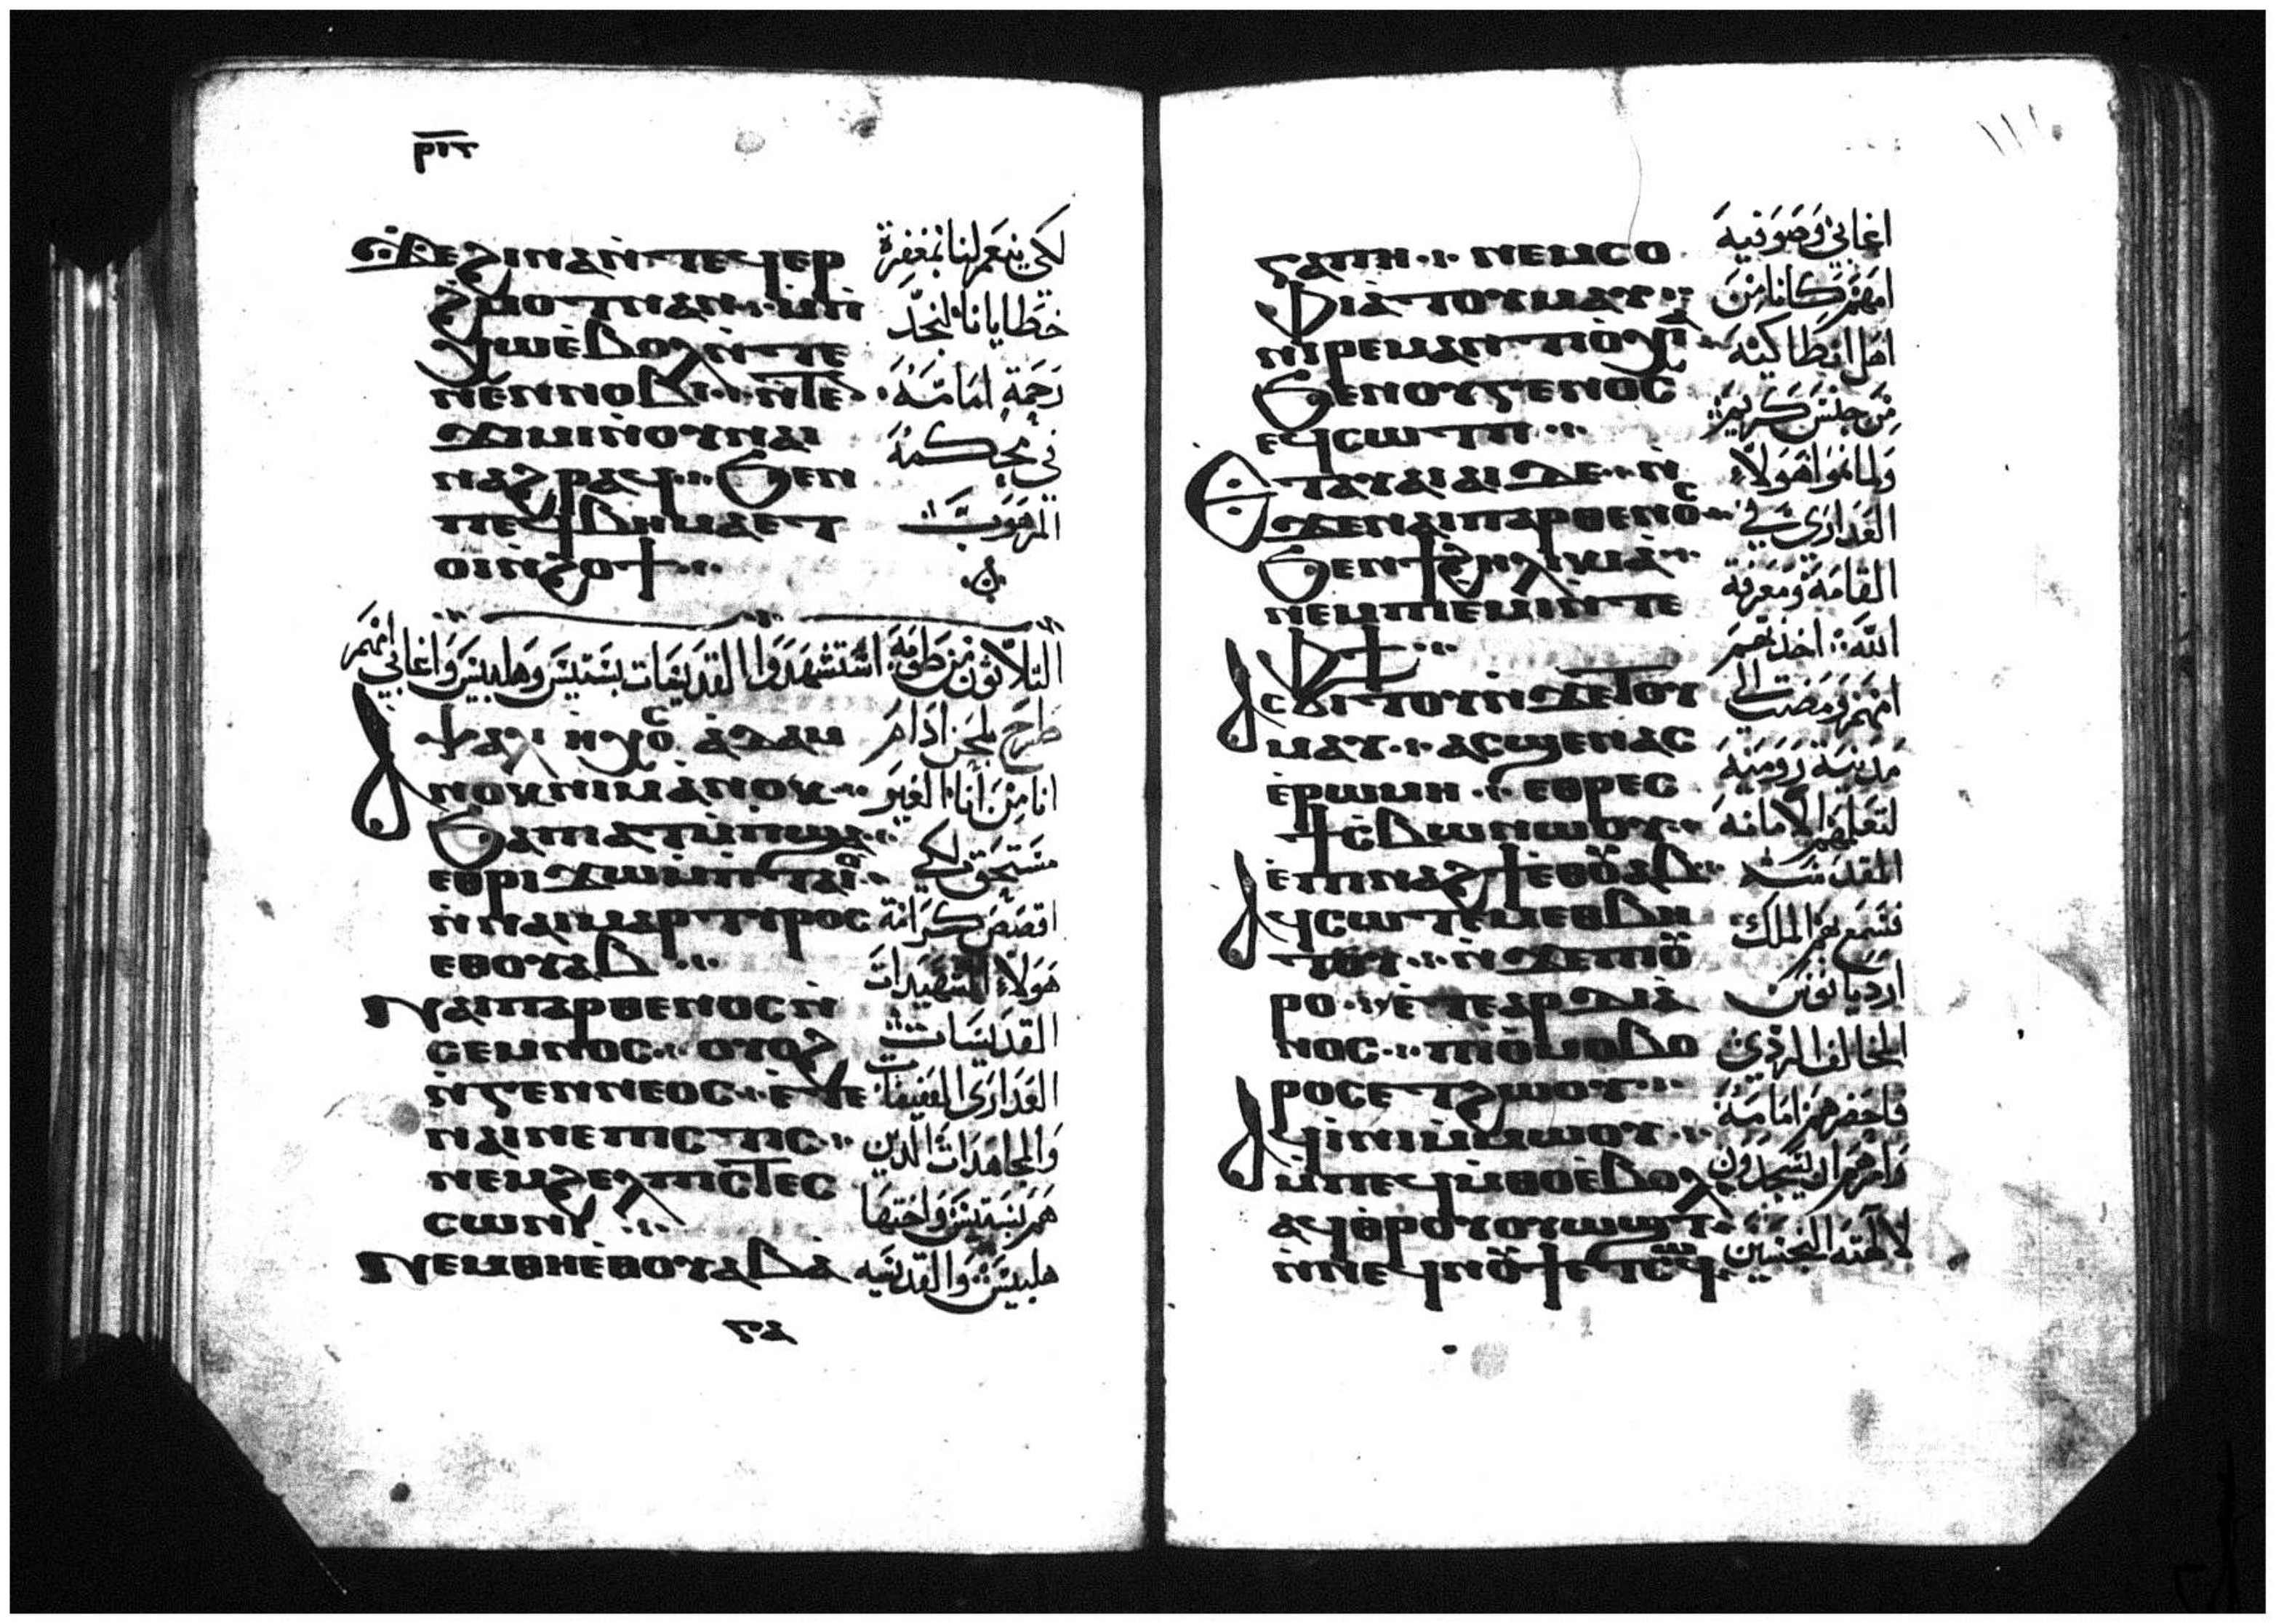 ⲣⲓⲅ
ϫⲉϩⲓⲛⲁⲛ̀ⲧⲉϥⲉⲣ
ϩ̀ⲙⲟⲧⲛⲁⲛ
ⲭⲱⲉ̀ⲃⲟⲗⲛ̀ⲧⲉ
ⲛⲉⲛⲛⲟⲃⲓ ⲛ̀ⲧⲉ
ϫⲓⲙⲓⲛ̀ⲟⲩⲛⲁⲓ
ⲛⲁϩⲣⲁϥ ϧⲉⲛ
ⲡⲉϥⲃⲏⲙⲁⲉⲧ
ⲟⲓⲛ̀ϩⲟϯ
لكي ينعم لنا بمغفرة
خطايانا لنجد
رحمة امامه
في محكمة
المرهوب
التلاثون من طوبه استشهدوا القديسات بستيس وهلبيس واغابي امهم
ⲯⲁⲗⲓ ⲛ̀ⲏⲭⲟⲥ ⲁ̀ⲇⲁⲙ
ⲁⲛⲟⲕⲛⲓⲙⲁⲛⲟⲕ
ϧⲁⲡⲓⲁⲧⲙ̀ⲡϣⲁ
ⲉⲑⲣⲓϫⲱⲙ̀ⲡⲧⲁⲓⲟ̀
ⲛ̀ⲛⲁⲓⲙⲁⲣⲧⲩⲣⲟⲥ
ⲉⲑⲟⲩⲁⲃ
ⲛⲁⲓⲡⲁⲣⲑⲉⲛⲟⲥⲛ̀
ⲥⲉⲙⲛⲟⲥ ⲟⲩⲟϩ
ⲛ̀ⲅⲉⲛⲛⲉⲟⲥ ⲉ̀ⲧⲉ
ⲛⲁⲓⲛⲉⲡⲓⲥⲧⲓⲥ
ⲛⲉⲙϩⲉⲗⲡⲓⲥⲧⲉⲥ
ⲥⲱⲛⲓ
ⲛⲉⲙⲑⲏⲉ̀ⲑⲟⲩⲁⲃⲁ̀
طرح بلحن ادام
انا من انا الغير
مستحق لكي
اقصص كرامة
هولاء الشهيدات
القديسات
العدارى العفيفات
والمجاهدات الدين
هم بستيس واختها
هلبيس والقديسه
ⲅⲁ
١١١
ⲅⲁⲡⲏ ⲛⲉⲙⲥⲟ
ⲫⲓⲁ̀ⲧⲟⲩⲙⲁⲩ
ⲛⲓⲣⲉⲙⲁⲛⲧⲓⲟ̀ⲭⲓⲁ̀
ϧⲉⲛⲟⲩⲅⲉⲛⲟⲥ
ⲉϥⲥⲱⲧⲡ
ⲉⲧⲁⲩⲁⲓⲁⲓⲇⲉ ⲛ̀
ϫⲉⲛⲁⲓⲡⲁⲣⲑⲉⲛⲟⲥ
ϧⲉⲛϯϩⲏⲗⲓⲕⲓⲁ̀
ⲛⲉⲙⲡⲉⲙⲓⲛ̀ⲧⲉ
ⲫϯ
ⲁⲥϭⲓⲧⲟⲩⲛ̀ϫⲉⲧⲟⲩ
ⲙⲁⲩ ⲁⲥϣⲉⲛⲁⲥ
ⲉ̀ⲣⲱⲙⲏ ⲉⲑⲣⲉⲥ
ϯⲥ̀ⲃⲱⲛⲱⲟⲩ
ⲉ̀ⲡⲓⲛⲁϩϯⲉⲑⲟⲩⲁⲃ
ⲁϥⲥⲱⲧⲉⲙⲉⲑⲃⲏ
ⲧⲟⲩ ⲛ̀ϫⲉⲡⲟⲩ
ⲣⲟ
ⲛⲟⲥ ⲡⲓⲟ̀ⲙⲟⲃⲟ
ⲣⲟⲥⲉⲧϩⲱⲟⲩ
ⲁϥⲓ̀ⲛⲓⲙ̀ⲙⲱⲟⲩ
ⲙ̀ⲡⲉϥⲙ̀ⲑⲟⲉ̀ⲃⲟⲗ
ⲁϥⲑⲣⲟⲩⲟⲩⲱϣⲧ
ⲛ̀ⲛⲉϥⲛⲟⲩϯⲉⲧⲥⲟϥ
اغابي وصوفيه
امهم كانا من
اهل انطاكيه
من جنس كريم
ولما نموا هولاء
العدارى في
القامه ومعرفة
الله اخذتهم
امهم ومضت الى
مدينة روميه
لتعلمهم الامانه
المقدسه
فسمع بهم الملك
اردیانوس
المخالف الردي
فاحضرهم امامه
وامرهم ان يسجدون
لالهته النجسين